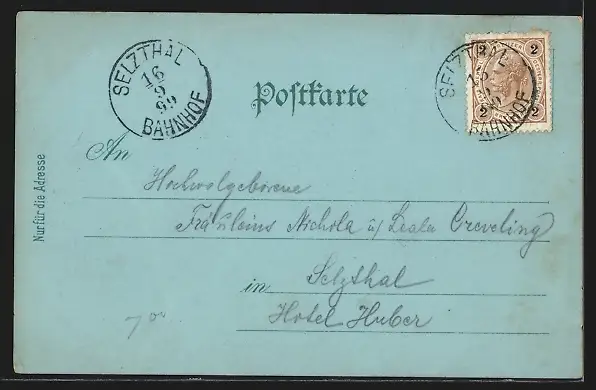 SELZTHAL
16
9
99
BAHNHOF
Postkarte
SELZTHAL
BAHNHOF
2 2
2 2
Nur für die Adresse
An
Hochwolgeborene
Fräuleins Nichola u/ Creveling
in Selzthal
Hotel Huber